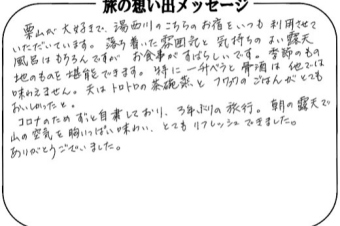 旅の想い出メッセージ
栗山が大好きで、湯西川のこちらのお宿をいつも利用させて
いただいています。落ち着いた雰囲気と気持ちのよい露天
風呂はもちろんですが、お食事がすばらしいです。季節のもの
地のものを堪能できます。特に一升べらと骨酒は他では
味わえません。夫はトロトロの茶碗蒸と フワフワのごはんがとても
おいしかったと。
コロナのためずっと自粛しており、3年ぶりの旅行。朝の露天で
山の空気を胸いっぱい味わい、とてもリフレッシュできました。
ありがとうございました。